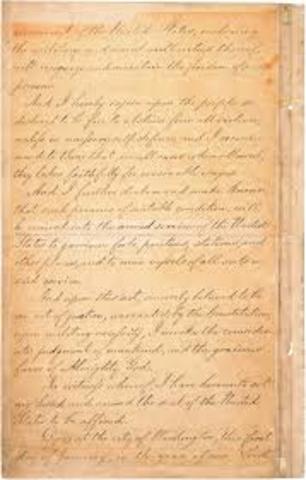 government of the United States, including
the military and naval authorities thereof,
will recognize and maintain the freedom of said
persons.
And I hereby enjoin upon the people so
declared to be free to abstain from all violence,
unless in necessary self-defence; and I recom-
mend to them that, in all cases when allowed,
they labor faithfully for reasonable wages.
And I further declare and make known
that such persons of suitable condition, will
be received into the armed service of the United
States to garrison forts, positions, stations, and
other places, and to man vessels of all sorts in
said service.
And upon this act, sincerely believed to be
an act of justice, warranted by the Constitution,
upon military necessity, I invoke the consider-
ate judgment of mankind, and the gracious
favor of Almighty God.
In witness whereof, I have hereunto set
my hand and caused the seal of the United
States to be affixed.
Done at the city of Washington, this first
day of January, in the year of our Lord